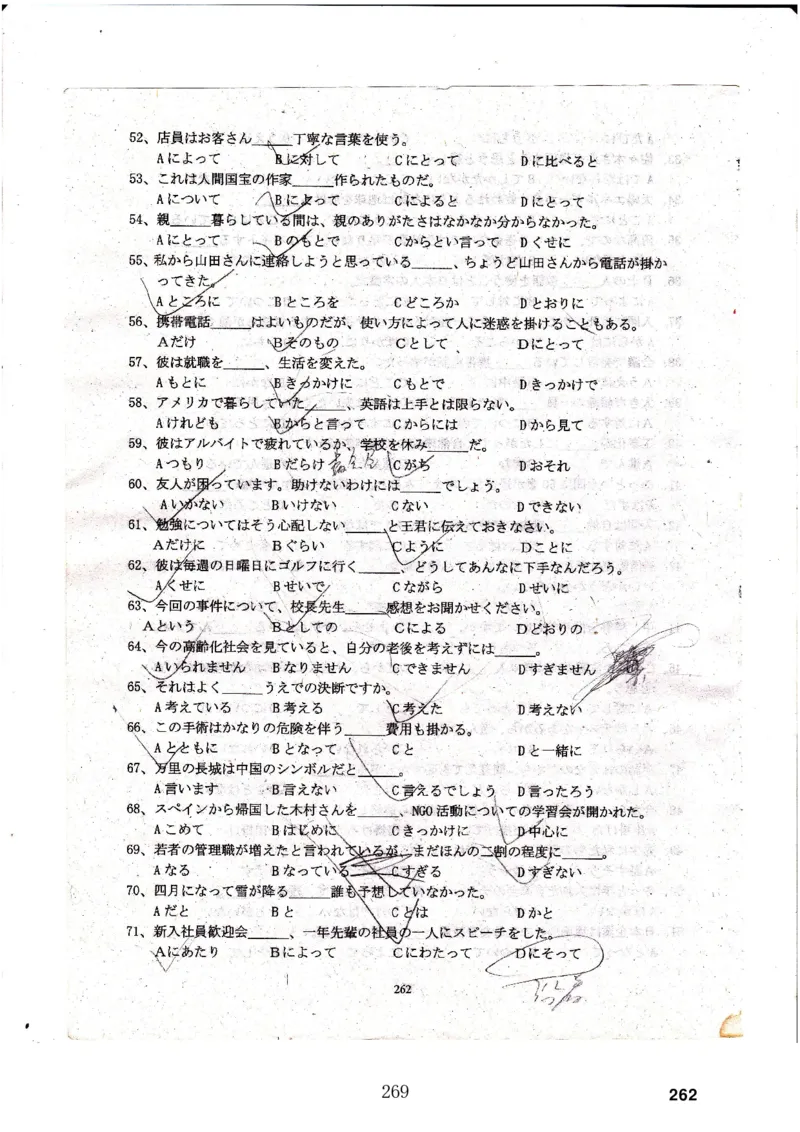 52、店員はお客さん_____丁寧な言葉を使う。
Aによって Bに対して Cにとって Dに比べると
53、これは人間国宝の作家_____作られたものだ。
Aについて Bによって Cによると Dにとって
54、親_____暮らしている間は、親のありがたさはなかなか分からなかった。
Aにとって Bのもとで Cからとい言って Dくせに
55、私から山田さんに連絡しようと思っている_____、ちょうど山田さんから電話が掛か
ってきた。
Aところに Bところを Cどころか Dとおりに
56、携帯電話_____はよいものだが、使い方によって人に迷惑を掛けることもある。
Aだけ Bそのもの Cとして Dにとって
57、彼は就職を_____、生活を変えた。
Aもとに Bきっかけに Cもとで Dきっかけで
58、アメリカで暮らしていた_____、英語は上手とは限らない。
Aけれども Bからと言って Cからには Dから見て
59、彼はアルバイトで疲れているか、学校を休み_____だ。
Aつもり Bだらけ Cがち Dおそれ
60、友人が困っています。助けないわけには_____でしょう。
Aいかない Bいけない Cない Dできない
61、勉強についてはそう心配しない_____と王君に伝えておきなさい。
Aだけに Bぐらい Cように Dことに
62、彼は毎週の日曜日にゴルフに行く_____、どうしてあんなに下手なんだろう。
Aくせに Bせいで Cながら Dせいに
63、今回の事件について、校長先生_____感想をお聞かせください。
Aという Bとしての Cによる Dどおりの
64、今の高齢化社会を見ていると、自分の老後を考えずには_____。
Aいられません Bなりません Cできません Dすぎません
65、それはよく_____うえでの決断ですか。
A考えている B考える C考えた D考えない
66、この手術はかなりの危険を伴う_____費用も掛かる。
Aとともに Bとなって Cと Dと一緒に
67、万里の長城は中国のシンボルだと_____。
A言います B言えない C言えるでしょう D言ったろう
68、スペインから帰国した木村さんを_____、NGO活動についての学習会が開かれた。
Aこめて Bはじめに Cきっかけに D中心に
69、若者の管理職が増えたと言われているが、まだほんの二割の程度に_____。
Aなる Bなっている Cすぎる Dすぎない
70、四月になって雪が降る_____誰も予想していなかった。
Aだと Bと Cとは Dかと
71、新入社員歓迎会_____、一年先輩の社員の一人にスピーチをした。
Aにあたり Bによって Cにわたって Dにそって
262
269
262